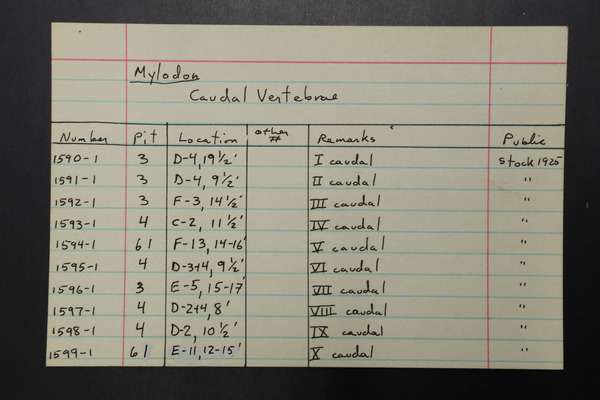 Mylodon
Caudal Vertebrae
Number Pit Location other # Remarks Public
1590-1 3 D-4, 19 1/2' I caudal Stock 1925
1591-1 3 D-4, 9 1/2' II caudal "
1592-1 3 F-3, 14 1/2' III caudal "
1593-1 4 C-2, 11 1/2' IV caudal "
1594-1 61 F-13, 14-16' V caudal "
1595-1 4 D-3+4, 9 1/2' VI caudal "
1596-1 3 E-5, 15-17' VII caudal "
1597-1 4 D-2+4, 8' VIII caudal "
1598-1 4 D-2, 10 1/2' IX caudal "
1599-1 61 E-11, 12-15' X caudal "